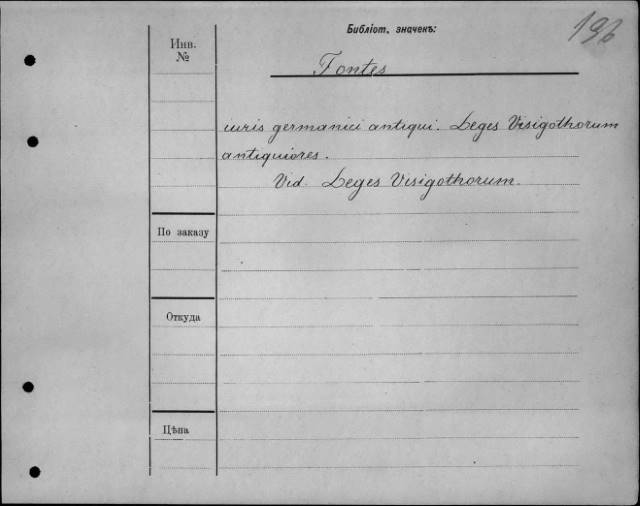 Библіот. значекъ:
196
Инв.
№
Fontes
iuris germanici antiqui. Leges Visigothorum
antiquiores.
Vid. Leges Visigothorum.
По заказу
Откуда
Цѣна